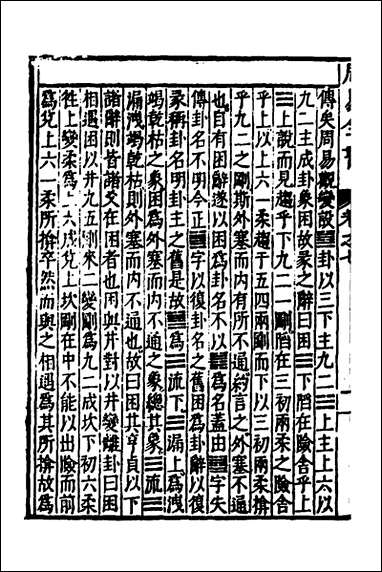 卷之七
傳矣周易觀變設䷮卦以☵下主九二☱上主上六以
九二主成卦象困故彖之辭曰困☵下陷在險舍乎上
☱上說而見趨乎下九二一剛陷在三初兩柔之險舍
乎上以上六一柔趨于五四兩剛而下以三初兩柔揜
乎九二之剛斯外塞而内有所不通言之外塞不通
也自有困辭遂以困爲卦名不以䷮爲名蓋由䷮字失
傳卦名不明今正䷮字以復卦名之舊困爲卦辭以復
彖稱卦名明卦主之舊是故䷮爲☵流下☱漏上爲洩
竭乾枯之象困爲外塞而内不通之象總其象☵流☱
漏洩竭乾枯則外塞而内不通也故曰困其亨貞以下
諸辭則皆諸爻在困者也困與井對以井變離卦曰困
相遇困以井九五剛來二變剛爲九二成坎下初六柔
徃上變柔爲上六成兌上坎剛在中不能以出險而前
爲兌上六一柔所揜卒然而與之相遇爲其所揜故爲